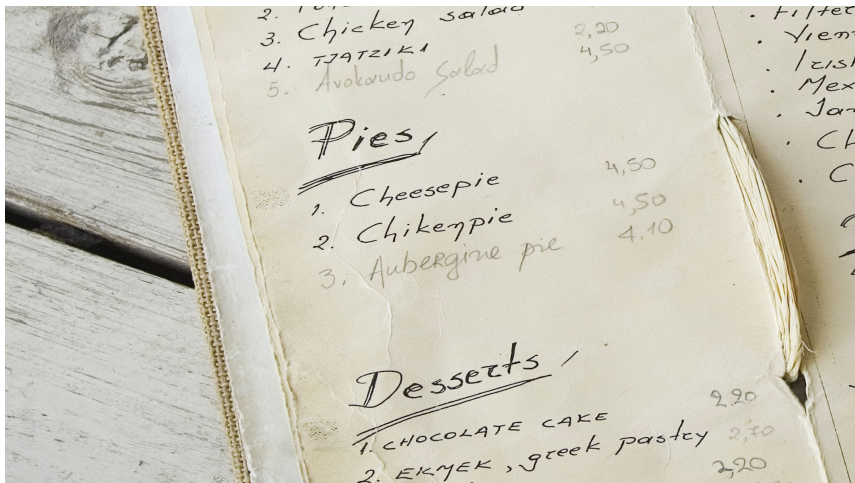 2.
3. Chicken salad
4. TJATZIKI 2,20
5. Avokaudo Salad 4,50
Pies
1. Cheesepie 4,50
2. Chikenpie 4,50
3. Aubergine pie 4.10
Desserts
1. CHOCOLATE CAKE 2.20
2. EKMEK, greek pastry 2,70
2,20
Filter
· Vien
· Irish
· Mex
· Ja
· Ch
· C